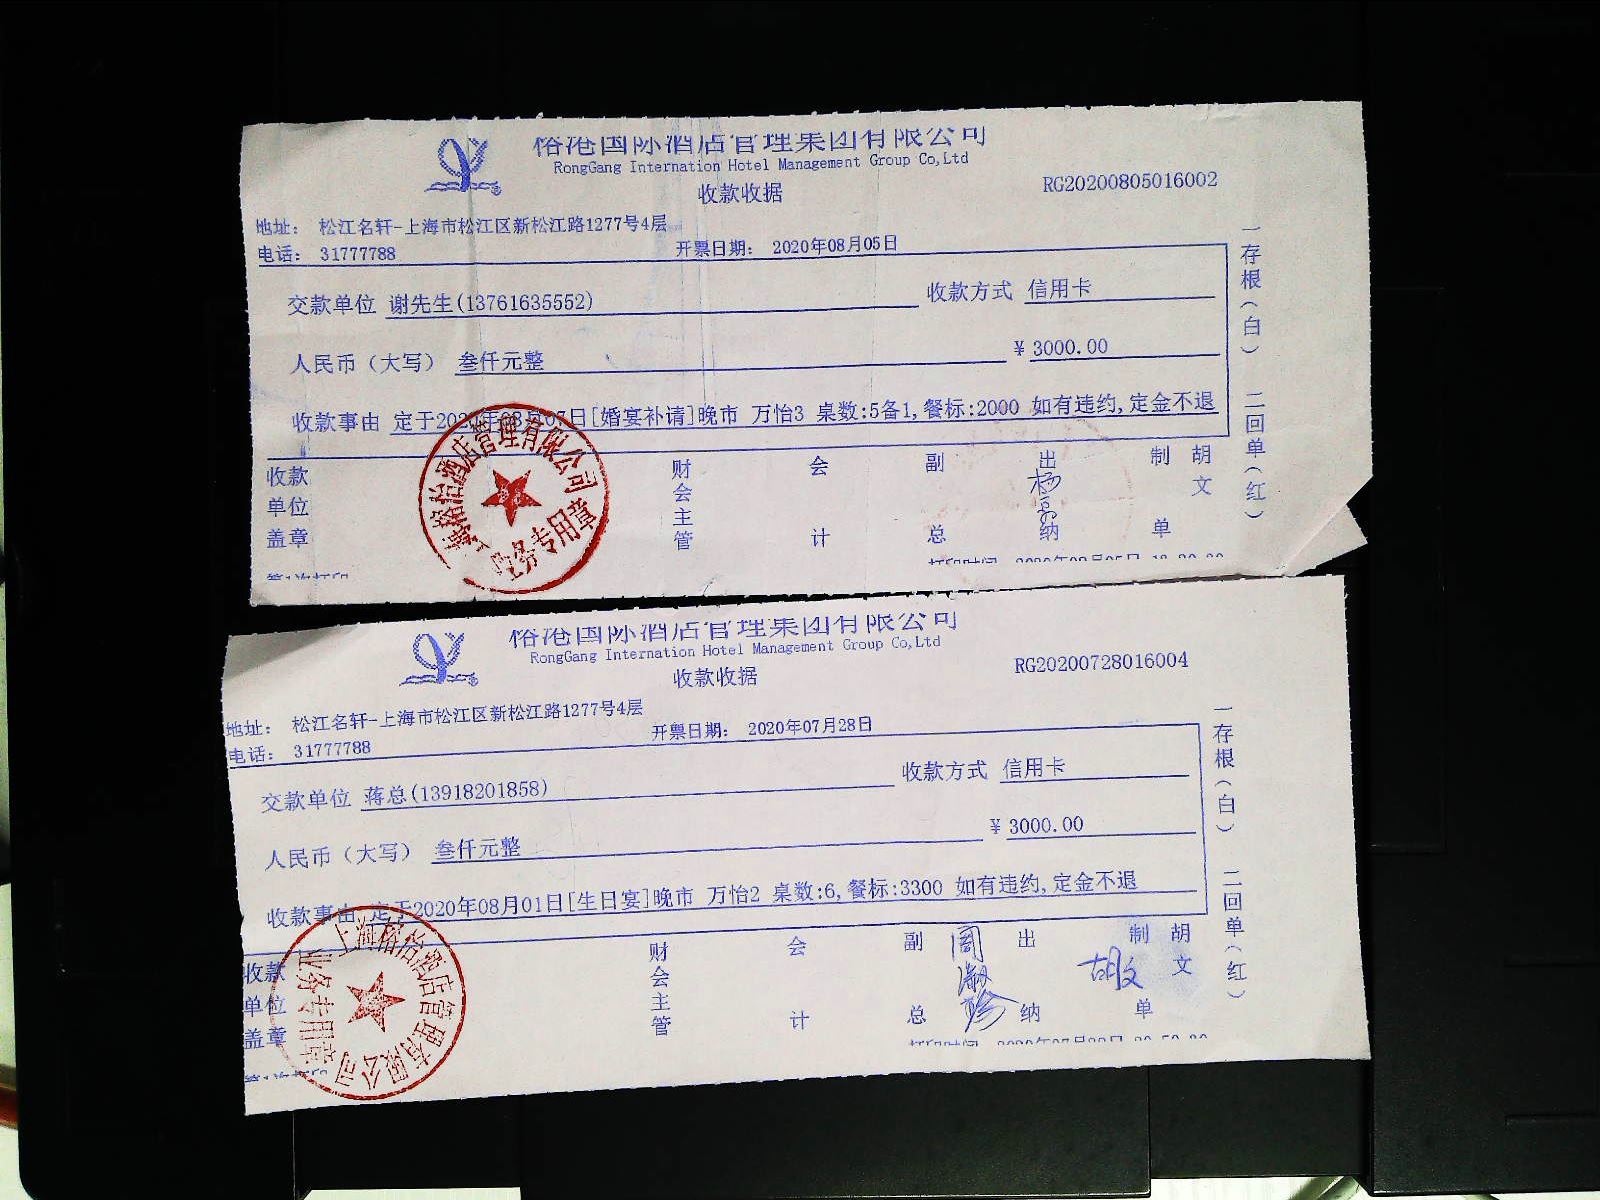 俗港国际酒店管理集团有限公司
RongGang Internation Hotel Management Group Co,Ltd
收款收据
RG20200805016002
地址： 松江名轩-上海市松江区新松江路1277号4层
电话： 31777788
开票日期： 2020年08月05日
交款单位 谢先生(13761635552)
收款方式 信用卡
人民币（大写） 叁仟元整
¥ 3000.00
收款事由 定于2020年08月07日[婚宴补请]晚市 万怡3 桌数:5备1,餐标:2000 如有违约,定金不退
收款单位盖章
财会主管
会计
副总
出纳
制单
胡文
一存根（白） 二回单（红）
酒店管理有限公司
业务专用章
第1次打印
打印时间
俗港国际酒店管理集团有限公司
RongGang Internation Hotel Management Group Co,Ltd
收款收据
RG20200728016004
地址： 松江名轩-上海市松江区新松江路1277号4层
电话： 31777788
开票日期： 2020年07月28日
交款单位 蒋总(13918201858)
收款方式 信用卡
人民币（大写） 叁仟元整
¥ 3000.00
收款事由 定于2020年08月01日[生日宴]晚市 万怡2 桌数:6,餐标:3300 如有违约,定金不退
收款单位盖章
财会主管
会计
副总
周淑珍
出纳
制单
胡文
胡文
一存根（白） 二回单（红）
酒店管理有限公司
业务专用章
第1次打印
打印时间